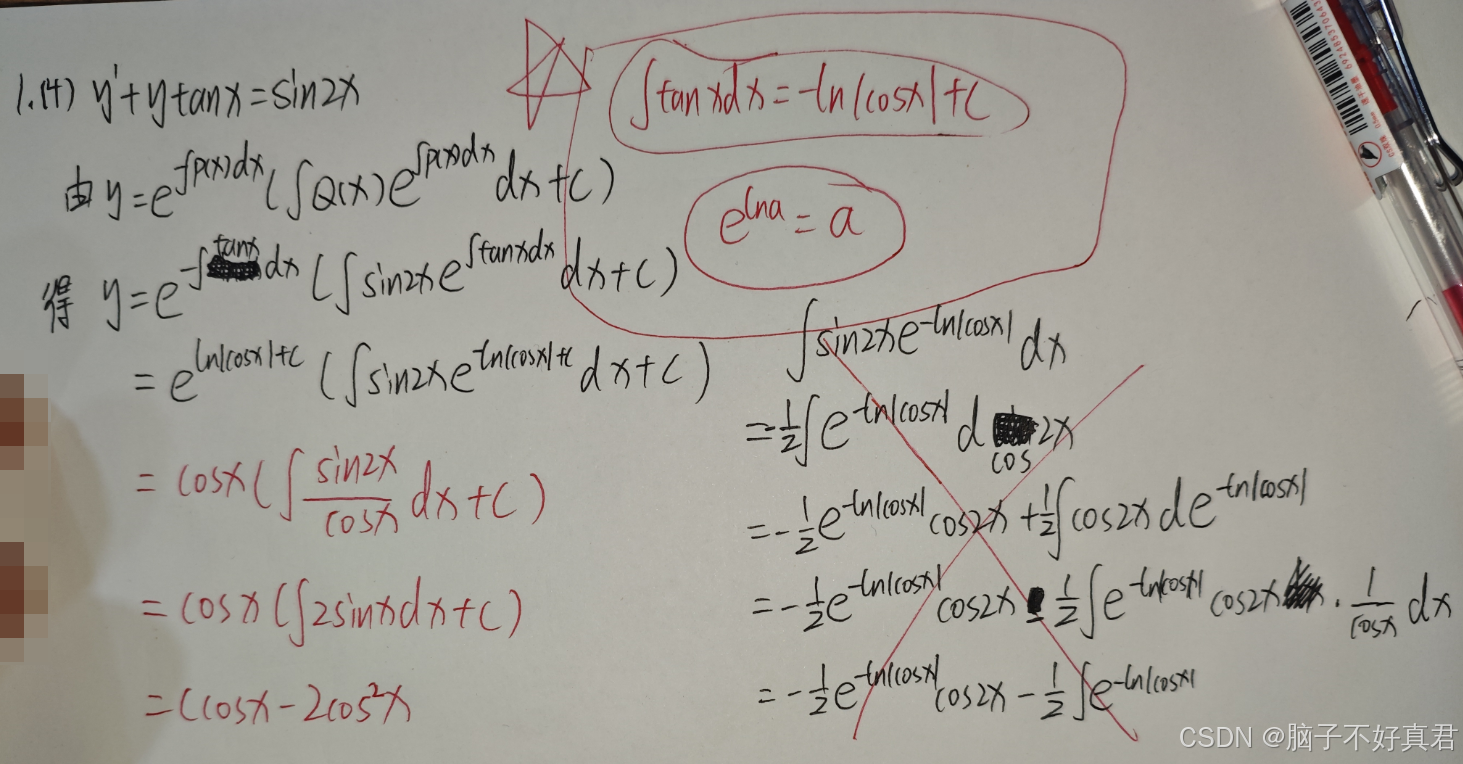 1.(4) y'+ytanx=sin2x
∫tanxdx=-ln|cosx|+C
由y=e^{∫p(x)dx}(∫Q(x)e^{∫p(x)dx}dx+C)
e^{lna}=a
得 y=e^{-∫tanxdx}(∫sin2xe^{∫tanxdx}dx+C)
=e^{ln|cosx|+C}(∫sin2xe^{-ln|cosx|+C}dx+C)
=cosx(∫\frac{sin2x}{cosx}dx+C)
=cosx(∫2sinxdx+C)
=Ccosx-2cos²x
∫sin2xe^{-ln|cosx|}dx
=-\frac{1}{2}∫e^{-ln|cosx|}dcos2x
=-\frac{1}{2}e^{-ln|cosx|}cos2x+\frac{1}{2}∫cos2xde^{-ln|cosx|}
=-\frac{1}{2}e^{-ln|cosx|}cos2x-\frac{1}{2}∫e^{-ln|cosx|}cos2x·\frac{1}{cosx}dx
=-\frac{1}{2}e^{-ln|cosx|}cos2x-\frac{1}{2}∫e^{-ln|cosx|}
CSDN @脑子不好真君